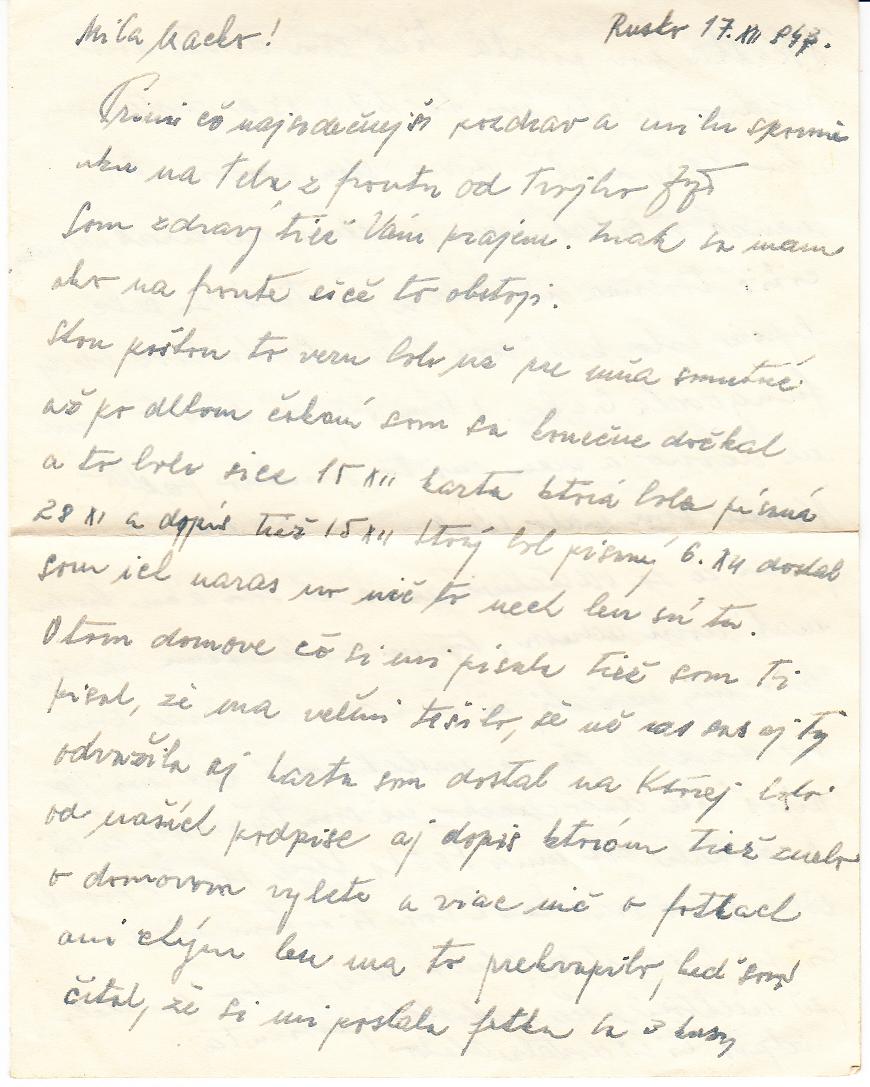 Rusko 17. XII 943.
Milá !
Prími čo najsrdečnejší pozdrav a milu spomie
nku na Teba z frontu od Tvojho
Som zdravý tiež Vám prajem. Inak sa mam
ako na fronte ešče to obstojí.
Stou poštou to veru bolo už pre mňa smutné
až po dlhom čakaní som sa konečne dočkal
a to bolo sice 15 XII karta ktorá bola písaná
28 XI a dopis tiež 15 XII ktorý bol písaný 6. XII dostal
som ich naras no nič to nech len sú tu.
O tom domove čo si mi písala tiež som Ti
písal, že ma veľmi tešilo, že už aj Ty
odvažila aj kartu som dostal na Ktorej boli
od našich podpise aj dopis ktoróm tiež znelo
o domovom vyleta a viac nič o fotkach
ani chýru len ma to prekvapilo, keď som
čítal, že si mi poslala fotku la 3 kusy